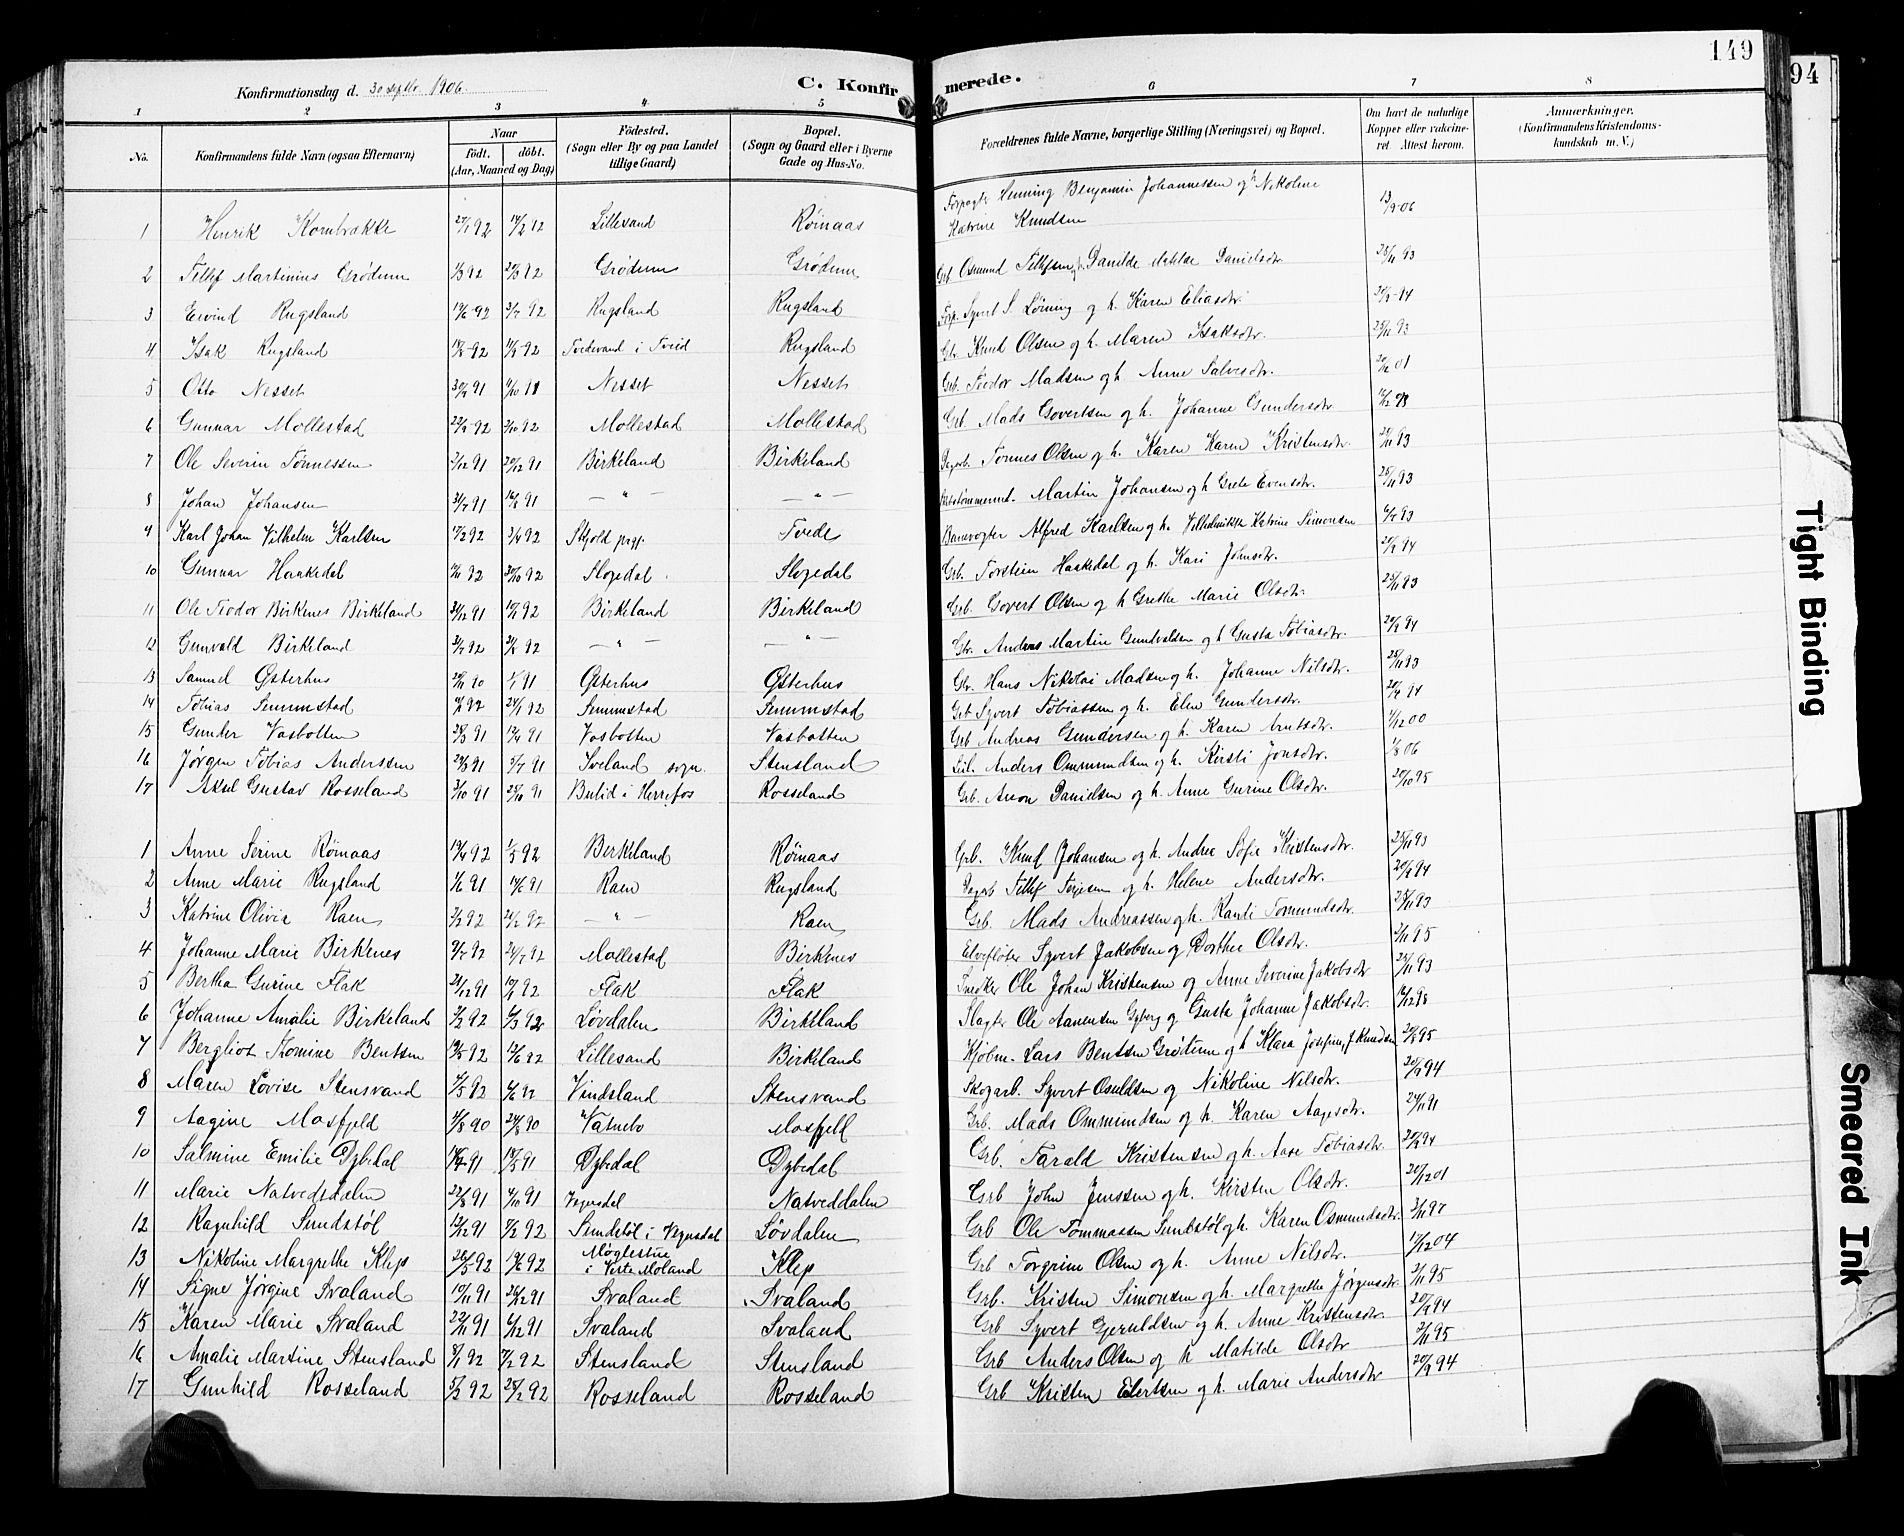 149
94
Konfirmationsdag d. 30 septbr. 1906.
C. Konfirmerede.
1 2 3 4 5 6 7 8
No.
Konfirmandens fulde Navn (ogsaa Efternavn)
Naar
födt. döbt.
(Aar, Maaned og Dag)
Födested.
(Sogn eller By og paa Landet tillige Gaard)
Bopæl.
(Sogn og Gaard eller i Byerne Gade og Hus-No.
Forældrenes fulde Navne, borgerlige Stilling (Næringsvei) og Bopæl.
Om havt de naturlige Kopper eller vakcineret. Attest herom.
Anmærkninger.
(Konfirmandens Kristendomskundskab m. V.)
1 Henrik Kornbrække 27/1 92 14/2 92 Lillesand Römaas Forpagter Henning Benjamin Johannessen og h. Nikoline Katrine Knudsen 13/9-06
2 Tellef Martinius Grødum Grødum Grødum Grb Osmund Tellefsen og h. Danilde Matilde Danielsdtr 25/11 93
3 Eivind Rugsland 3/7 92 Rugsland Rugsland Forp. Syvert S. Lörning og h. Karen Eliasdtr.
4 Isak Rugsland Tvedevand i Tveid Rugsland Gbr. Knud Olsen og h. Maren Isaksdtr. 25/11 93
5 Otto Nesset Nesset Nesset Grb. Tedor Madsen og h. Anne Salvesdtr.
6 Gunnar Mollestad Mollestad Mollestad Grb. Mads Govertsen og h. Johanne Gundersdtr
7 Ole Severin Tønnessen 20/12 91 Birkeland Birkeland Dagarb. Tønnes Olsen og h. Karen Karen Kristensdtr.
8 Johan Johansen 31/7 91 16/8 91 — " — — " — Martin Johansen og h Grete Evensdtr. 25/11 93
9 Karl Johan Vilhelm Karlsen 17/2 92 3/4 92 Skjold prgj. Tvede Banevogter Alfred Karlsen og h. Vilhelmine Katrine Simonsen
10 Gunnar Haakedal Slogedal Slogedal Grb. Torstein Haakedal og h. Kari Johnsdtr. 20/9 94
11 Ole Tedor Birkenes Birkeland 31/12 91 Birkeland Birkeland Grb. Govert Olsen og h Grethe Marie Olsdtr. 25/11 93
12 Gunvald Birkeland — " — — " — Gbr. Anders Martin Gundvaldsen og h Gusta Tobiasdtr. 20/9 94
13 Samuel Østerhus Østerhus Østerhus Gbr. Hans Nikolai Madsen og h. Johanne Nilsdtr. 25/11 93
14 Tobias Senumstad Senumstad Senumstad Grb Syvert Tobiassen og h. Elen Gundersdtr. 20/9 94
15 Gunder Vasbotten 12/4 91 Vasbotten Vasbotten Grb Andreas Gundersen og h. Karen Arntsdtr. 1/12 00
16 Jørgen Tobias Anderssen 5/7 91 Iveland sogn. Stensland Anders Ommundsen og h. Kirsti Jonsdtr. 1/8 06
17 Aksel Gustav Rosseland 3/10 91 25/10 91 Bulid i Herrefos Rosseland Grb. Aron Danielsen og h. Anne Gurine Olsdtr. 20/10 95
1 Anne Serine Rømaas 19/4 92 1/5 92 Berkeland Rømaas Grb. Knud Johansen og h. Andrea Sofie Kristensdtr. 25/11 93
2 Anne Marie Rugsland 1/6 91 14/6 91 Raen Rugsland Dagarb Tellef Terjesen og h. Helene Andersdtr. 20/9 94
3 Katrine Olivia Raen 3/2 92 21/2 92 — " — Raen Grb. Mads Andreassen og h. Ranti Tomundsdtr. 25/11 93
4 Johanne Marie Birkenes 9/7 92 24/7 92 Mollestad Birkenes Elvefløter Syvert Jakobsen og Dorthee Olsdtr. 3/11 95
5 Bertha Gurine Flak 21/12 91 17/1 92 Flak Flak Snedker Ole Johan Kristensen og Anne Severine Jakobsdtr 25/11 93
6 Johanne Amalie Birkeland 3/2 92 6/3 92 Løvdalen Birkeland Slagter Ole Aanensen Gyberg og Gusta Johanne Jakobsdtr. 16/12 98
7 Bergliot Tomine Bentsen 19/5 92 12/6 92 Lillesand Birkeland Kjøbm. Lars Bentsen Grötum og h Klara Josefine J. Knudsen 20/9 95
8 Maren Lovise Stensvand 6/6 92 Vindsland Stensvand Skogarb. Syvert Osuldsen og Nikoline Nilsdtr. 20/9 94
9 Aagine Mosfjeld 4/8 90 24/8 90 Vatnebo Mosfjeld Grb. Mads Ommundsen og h. Karen Aagesdtr. 24/11 91
10 Salmine Emilie Dybedal Dybedal Dybedal Grb. Tarald Kristensen og h. Aase Tobiasdtr. 20/9 94
11 Marie Natvedsdalen 22/8 91 4/10 91 Vegusdal Natveddalen Grb John Jenssen og h. Kirsten Olsdtr. 20/12 01
12 Ragnhild Sundstøl 12/12 91 7/2 92 Sundstøl i Vegusdal Løvdalen Grb Ole Tommassen Sundstøl og h. Karen Osmundsdtr 3/11 97
13 Nikoline Margrethe Klep 26/5 92 19/6 92 Møglestue i Vestre Moland Klep Grb Torgrim Olsen og h. Anne Nilsdtr. 17/12 04
14 Signe Jørgine Svaland 10/11 91 26/12 91 Svaland Svaland Grb. Kristen Simonsen og h. Margrethe Jørgensdtr. 3/11 95
15 Karen Marie Svaland 22/11 91 6/12 91 Svaland Svaland Grb Syvert Gjeruldsen og h. Anne Kristensdtr. 20/9 94
16 Amalie Martine Stensland 8/1 92 7/2 92 Stensland Stensland Grb Anders Olsen og h Matilde Olsdtr 3/11 95
17 Gunhild Rosseland 5/2 92 28/2 92 Rosseland Rosseland Grb Kristen Elertsen og h. Marie Andersdtr 20/9 94
Tight Binding
Smeared Ink